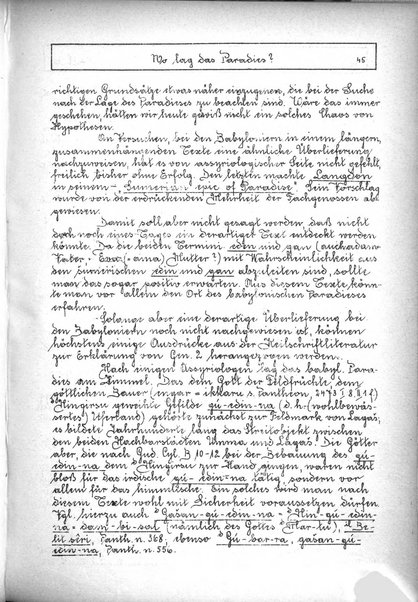 Wo lag das Paradies?
45
richtigen Grundsätze etwas näher einzugehen, die bei der Suche
nach der Lage des Paradieses zu beachten sind. Wäre das immer
geschehen, hätten wir heute gewiß nicht ein solches Chaos von
Hypothesen.
An Versuchen, bei den Babyloniern in einem längern,
zusammenhängenden Texte eine ähnliche Überlieferung
nachzuweisen, hat es von assyriologischer Seite nicht gefehlt,
freilich bisher ohne Erfolg. Den letzten machte Langdon
in seinem "Sumerian epic of Paradise". Sein Vorschlag
wurde von der erdrückenden Mehrheit der Fachgenossen ab
gewiesen.
Damit soll aber nicht gesagt werden, daß nicht
doch noch eines Tages ein derartiger Text entdeckt werden
könnte. Da die beiden Termini eden und gan (auch adam-
Vater, Eva (-ama) Mutter?) mit Wahrscheinlichkeit aus
den sumerischen edin und gan abzuleiten sind, sollte
man das sogar positiv erwarten. Aus diesem Texte könn-
te man vor allem den Ort des babylonischen Paradieses
erfahren.
Solange aber eine derartige Überlieferung bei
den Babyloniern noch nicht nachgewiesen ist, können
höchstens einige Ausdrücke aus der Keilschriftliteratur
zur Erklärung von Gen. 2 herangezogen werden.
Nach einigen Assyriologen lag das babyl. Para-
dies am Himmel. Das dem Gott der Feldfrüchte, dem
göttlichen Bauer (engar = ikkaru s. Pantheon, 2473 I § II f)
Ningirsu geweihte Gefilde gú-edin-na (d.h. (wohlbewäs-
sertes?) Uferland) gehörte zunächst zur Feldmark von Lagaš;
es bildete Jahrhunderte lang das Streitobjekt zwischen
den beiden Nachbarstädten Umma und Lagaš. Die Götter
aber, die nach Gud. Cyl. B 10-12 bei der Bebauung des gú-
edin-na dem Ningirsu zur Hand gingen, waren nicht
bloß für das irdische gú-edin-na tätig, sondern vor
allem für das himmlische. Ein solches wird man nach
diesem Texte wohl mit Sicherheit voraussetzen dürfen.
Vgl. hierzu auch Gašan-gú-edin-na = Nin-gú-edin-
na = dam-bi-sal (nämlich des Gottes Mar-tu), Be-
lit ṣêri, Panth. n. 368; ebenso Gú-bar-ra, gašan-gú-
edin-na, Panth. n. 556.